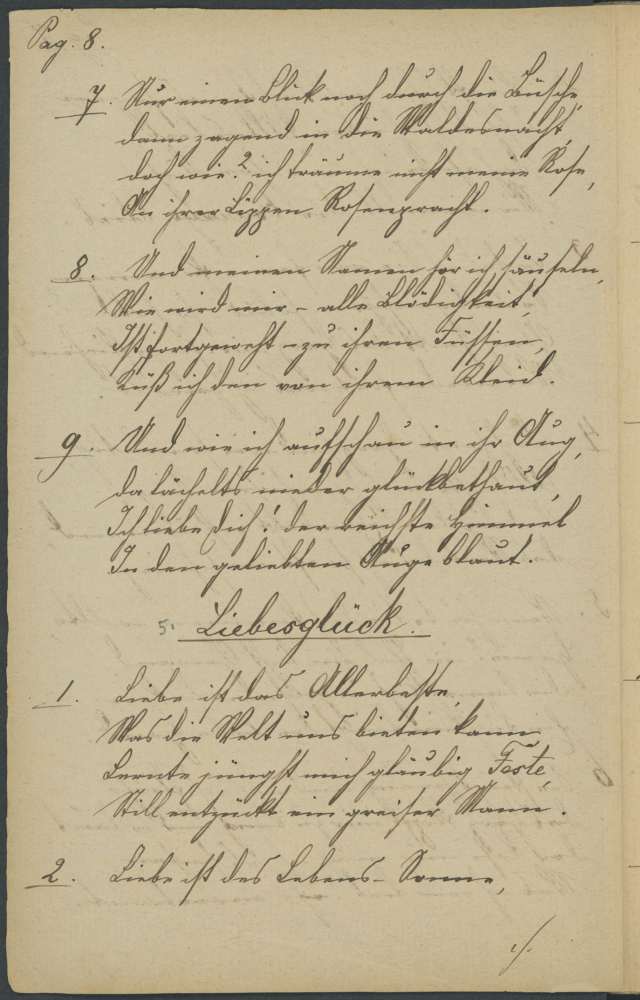 Pag. 8.
7. Nur einen Blick noch durch die Büsche,
dann zagend in die Waldesnacht,
doch wie? ich träume nicht meine Rose,
An ihrer Lippen Rosenpracht.
8. Und meinen Namen hör ich säuseln,
Wie wird mir - alle Blödigkeit,
Ist fortgeweht - zu ihren Füssen,
Küß ich den von ihrem Kleid.
9. Und wie ich aufschau in ihr Aug,
da lächelts nieder glückbethaut,
Ich liebe dich! der reichste Himmel
In den geliebten Auge blaut.
5. Liebesglück.
1. Liebe ist das Allerbeste,
Was die Welt uns bieten kann
Lernte jüngst mich gläubig Feste,
Still entzückt ein greiser Mann.
2. Liebe ist des Lebens-Sonne,
./.